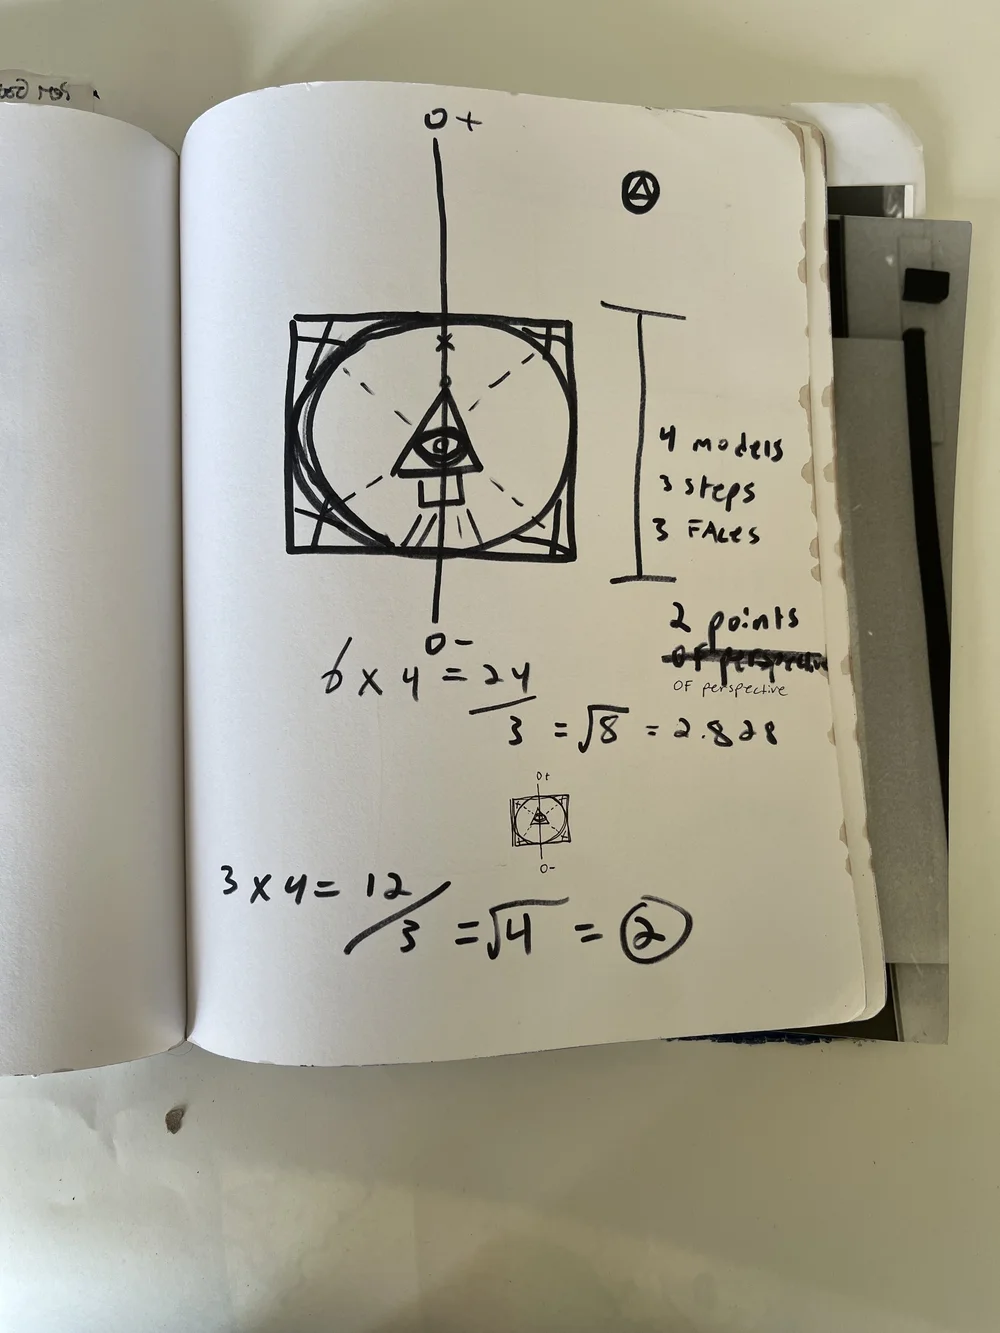 O +
x
4 models
3 steps
3 FAces
O -
2 points
OF perspective
OF perspective
6 x 4 = 24
3 = √8 = 2.828
O+
O-
3 x 4 = 12
/ 3 = √4 = 2